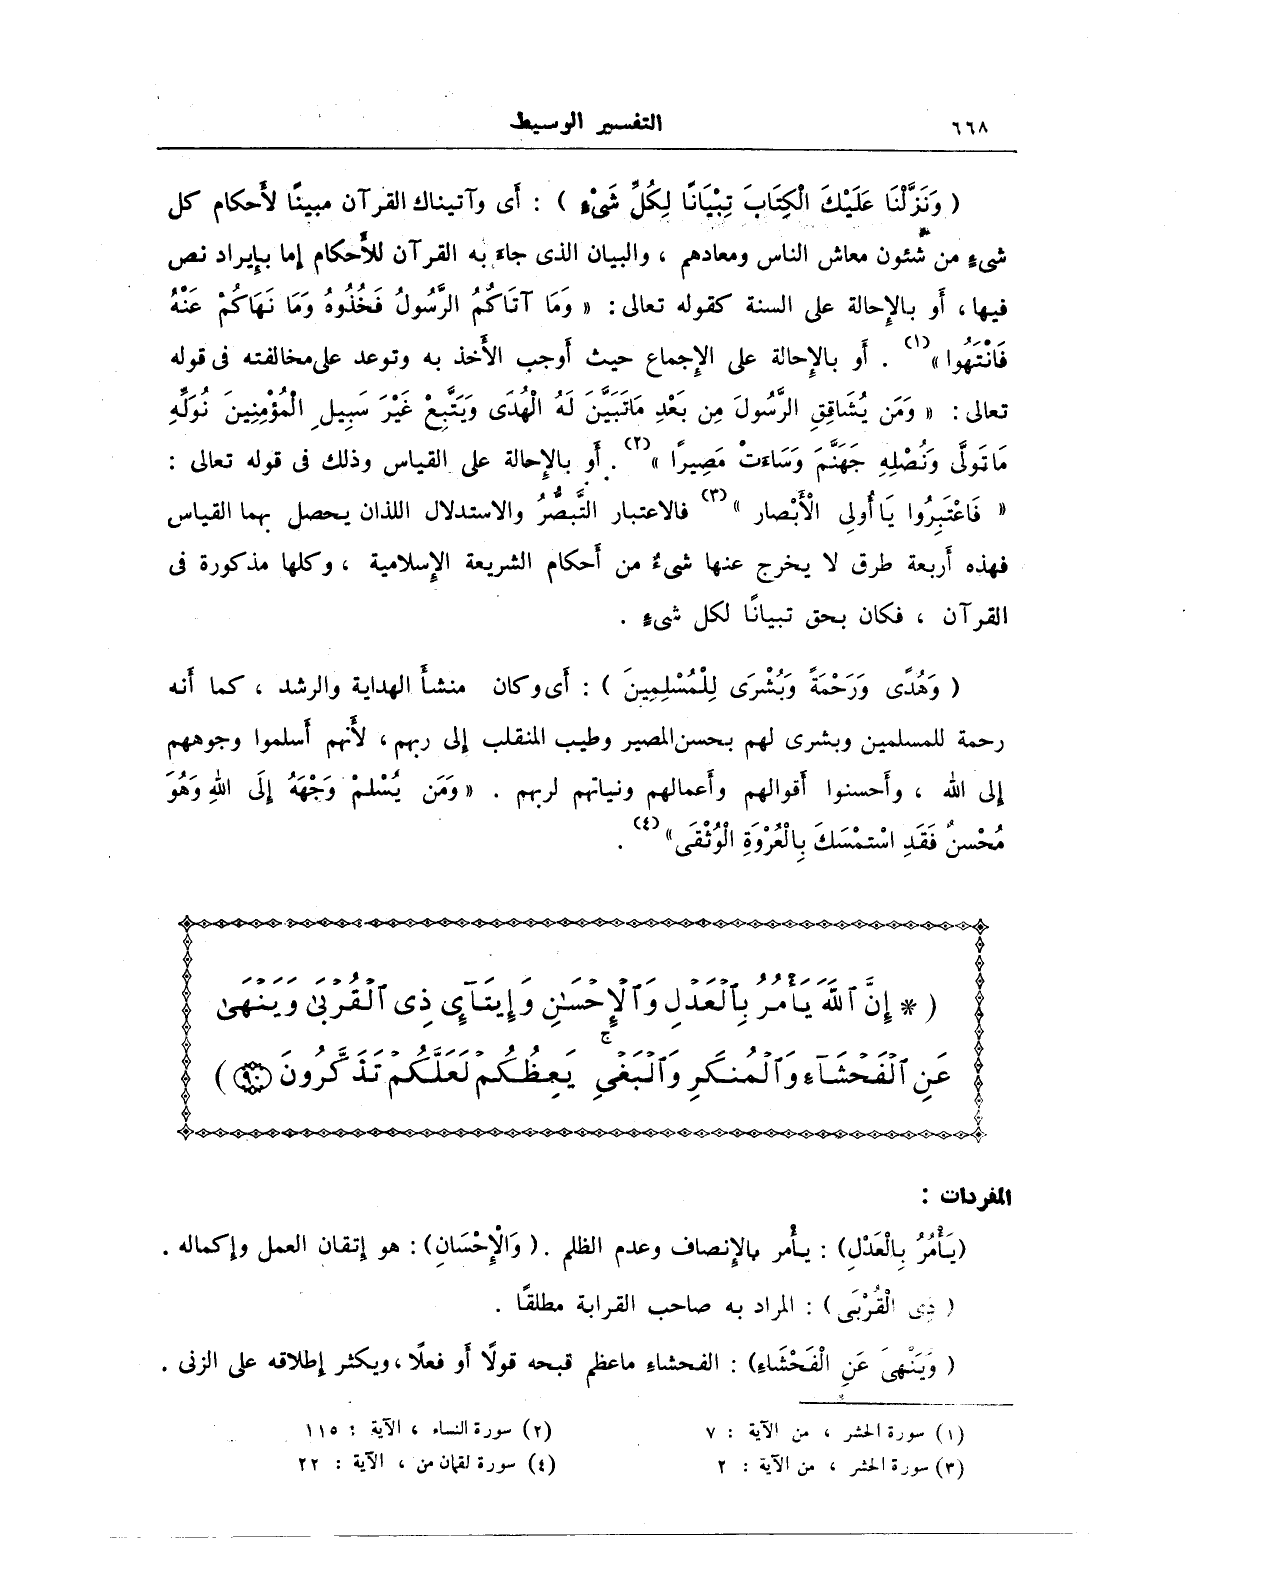 ٦٦٨
التفسير الوسيط
( وَنَزَّلْنَا عَلَيْكَ الْكِتَابَ تِبْيَانًا لِكُلِّ شَىْءٍ ) : أَى وآتيناك القرآن مبينًا لأَحكام كل
شىءٍ من شئون معاش الناس ومعادهم ، والبيان الذى جاءَ به القرآن للأَحكام إما بإيراد نص
فيها، أَو بالإحالة على السنة كقوله تعالى: « وَمَا آتَاكُمُ الرَّسُولُ فَخُذُوهُ وَمَا نَهَاكُمْ عَنْهُ
فَانْتَهُوا »(١) . أَو بالإحالة على الإجماع حيث أَوجب الأَخذ به وتوعد على مخالفته فى قوله
تعالى: « وَمَن يُشَاقِقِ الرَّسُولَ مِن بَعْدِ مَاتَبَيَّنَ لَهُ الْهُدَى وَيَتَّبِعْ غَيْرَ سَبِيلِ الْمُؤْمِنِينَ نُوَلِّهِ
مَاتَوَلَّى وَنُصْلِهِ جَهَنَّمَ وَسَاءَتْ مَصِيرًا »(٢) . أَو بالإحالة على القياس وذلك فى قوله تعالى :
« فَاعْتَبِرُوا يَا أُولِى الْأَبْصار »(٣) فالاعتبار التَّبصُّرُ والاستدلال اللذان يحصل بهما القياس
فهذه أربعة طرق لا يخرج عنها شىءٌ من أَحكام الشريعة الإسلامية ، وكلها مذكورة فى
القرآن ، فكان بحق تبيانًا لكل شىءٍ .
( وَهُدًى وَرَحْمَةً وَبُشْرَى لِلْمُسْلِمِينَ ) : أَى وكان منشأَ الهداية والرشد ، كما أَنه
رحمة للمسلمين وبشرى لهم بحسن المصير وطيب المنقلب إلى ربهم، لأَنهم أَسلموا وجوههم
إلى الله ، وأَحسنوا أَقوالهم وأَعمالهم ونياتهم لربهم . « وَمَن يُسْلِمْ وَجْهَهُ إِلَى اللهِ وَهُوَ
مُحْسِنٌ فَقَدِ اسْتَمْسَكَ بِالْعُرْوَةِ الْوُثْقَى»(٤) .
( * إِنَّ ٱللَّهَ يَأْمُرُ بِٱلْعَدْلِ وَٱلْإِحْسَٰنِ وَإِيتَآءِ ذِى ٱلْقُرْبَىٰ وَيَنْهَىٰ
عَنِ ٱلْفَحْشَآءِ وَٱلْمُنكَرِ وَٱلْبَغْىِ ۚ يَعِظُكُمْ لَعَلَّكُمْ تَذَكَّرُونَ ٩٠ )
المفردات :
(يَأْمُرُ بِالْعَدْلِ) : يأْمر بالإنصاف وعدم الظلم . ( وَالْإِحْسَانِ) : هو إتقان العمل وإكماله .
( ذِى الْقُرْبَى ) : المراد به صاحب القرابة مطلقًا .
( وَيَنْهَى عَنِ الْفَحْشَاءِ) : الفحشاء ماعظم قبحه قولًا أَو فعلًا ، ويكثر إطلاقه على الزنى .
(١) سورة الحشر ، من الآية : ٧
(٢) سورة النساء ، الآية : ١١٥
(٣) سورة الحشر ، من الآية : ٢
(٤) سورة لقمان من ، الآية : ٢٢